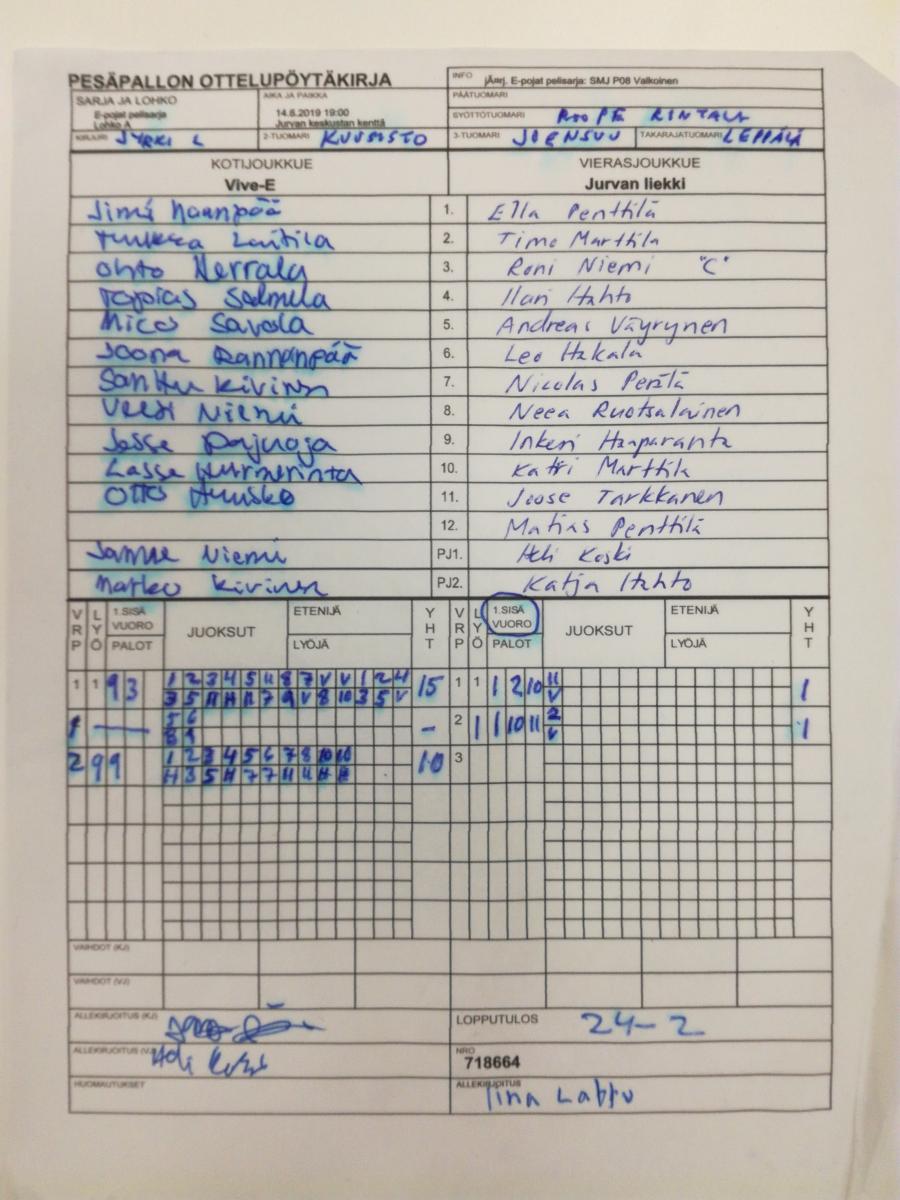 PESÄPALLON OTTELUPÖYTÄKIRJA
INFO jÄsrj. E-pojat pelisarja: SMJ P08 Valkoinen
SARJA JA LOHKO
E-pojat pelisarja
Lohko A
AIKA JA PAIKKA
14.6.2019 19:00
Jurvan keskustan kenttä
PÄÄTUOMARI
SYÖTTÖTUOMARI ROOPE RINTALA
KIRJURI JYRKI L 2-TUOMARI KUUSISTO 3-TUOMARI JOENSUU TAKARAJATUOMARI LEPPÄLÄ
KOTIJOUKKUE VIERASJOUKKUE
Vive-E Jurvan liekki
Jimi Haanpää 1. Ella Penttilä
Tuukka Laitila 2. Timo Marttila
Ohto Herrala 3. Roni Niemi "C"
Topias Salmela 4. Ilari Hahto
Mico Savola 5. Andreas Väyrynen
Joona Rannanpää 6. Leo Hakala
Santtu Kivinen 7. Nicolas Perälä
Veeti Niemi 8. Neea Ruotsalainen
Jesse 9. Inkeri Haaparanta
Lasse Hurmerinta 10. Katri Marttila
Otto Huusko 11. Joose Tarkkanen
12. Matias Penttilä
Janne Niemi PJ1. Heli Koski
Marko Kivinen PJ2. Katja Hahto
VRP LYÖ 1.SISÄ VUORO PALOT JUOKSUT ETENIJÄ LYÖJÄ YHT VRP LYÖ 1.SISÄ VUORO PALOT JUOKSUT ETENIJÄ LYÖJÄ YHT
1 1 9 3 1 2 3 4 5 11 8 7 V V 1 2 4 15 1 1 1 2 10 11 1
3 5 H H 11 7 9 V 8 10 3 5 V V
1 — 5 6 – 2 1 1 10 11 2 1
8 9 V
2 9 9 1 2 3 4 5 6 7 8 10 10 10 3
H 3 5 H 7 7 H H H H
VAIHDOT (KJ)
VAIHDOT (VJ)
ALLEKIRJOITUS (KJ) LOPPUTULOS 24-2
ALLEKIRJOITUS (VJ) Heli Koski NRO 718664
HUOMAUTUKSET ALLEKIRJOITUS Tiina Lappu